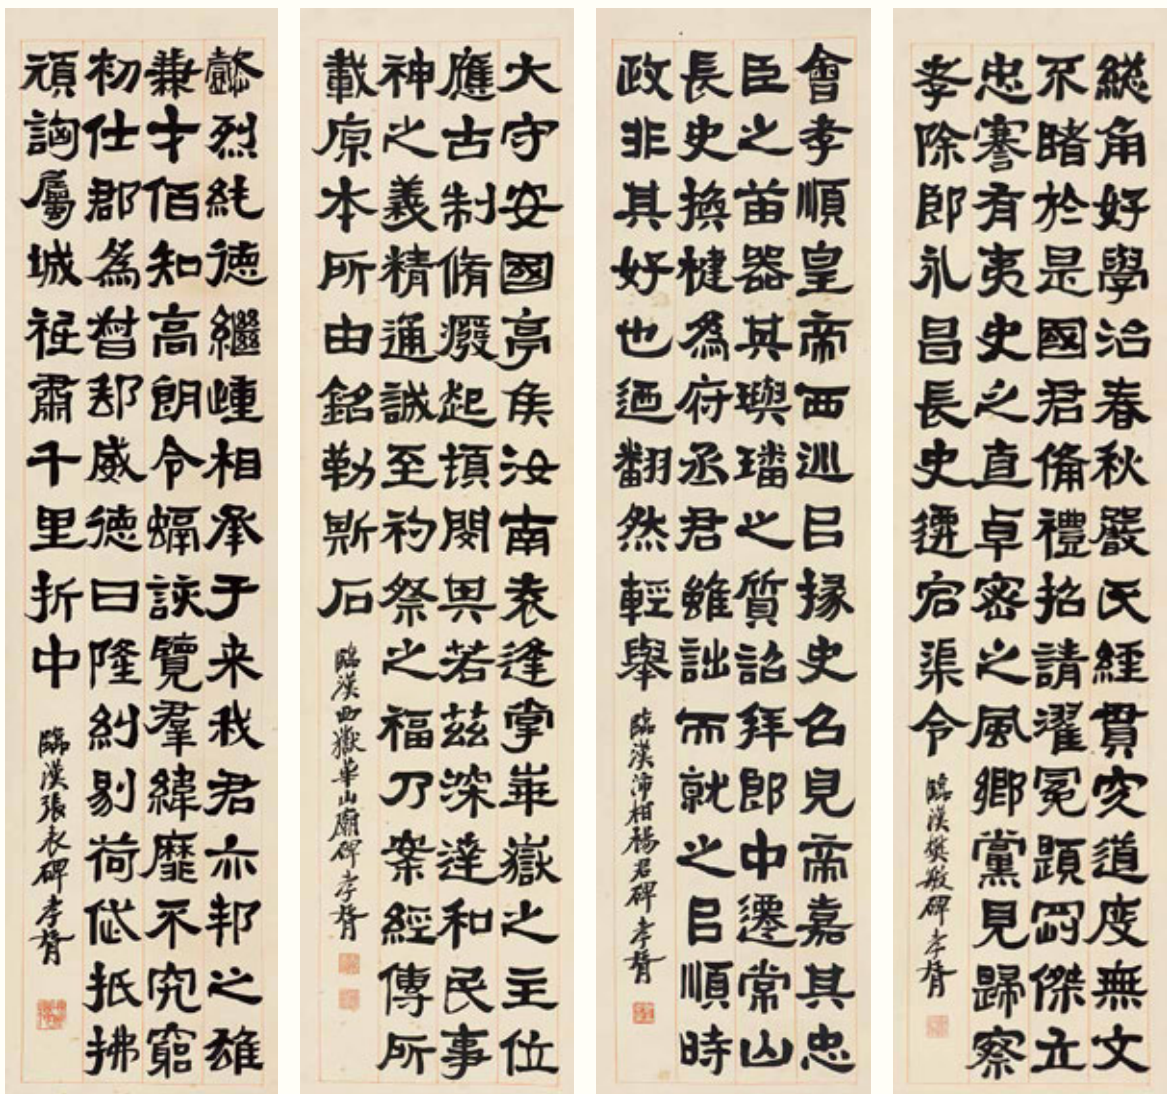 緫角好學治春秋嚴氏經貫究道度無文
不睹於是國君備禮招請濯冕題罔傑立
忠謇有夷史之直卓密之風鄉黨見歸察
孝除郎永昌長史遷宕渠令
臨漢樊敏碑 孝胥
會孝順皇帝西巡㠯掾史召見帝嘉其忠
臣之苗器其璵璠之質詔拜郎中遷常山
長史換楗為府丞君雖詘而就之㠯順時
政非其好也迺翻然輕舉
臨漢沛相楊君碑 孝胥
大守安國亭侯汝南袁逢掌華嶽之主位
應古制脩癈起頓閔其若茲深達和民事
神之義精通誠至礿祭之福乃案經傳所
載原本所由銘勒斯石
臨漢西嶽華山廟碑 孝胥
懿烈純德繼踵相承于来我君亦邦之雄
兼才佰知高朗令詼覽羣緯靡不究窮
初仕郡為督郵威德曰隆糾剔荷忒抵拂
頑訽屬城祗肅千里折中
臨漢張表碑 孝胥